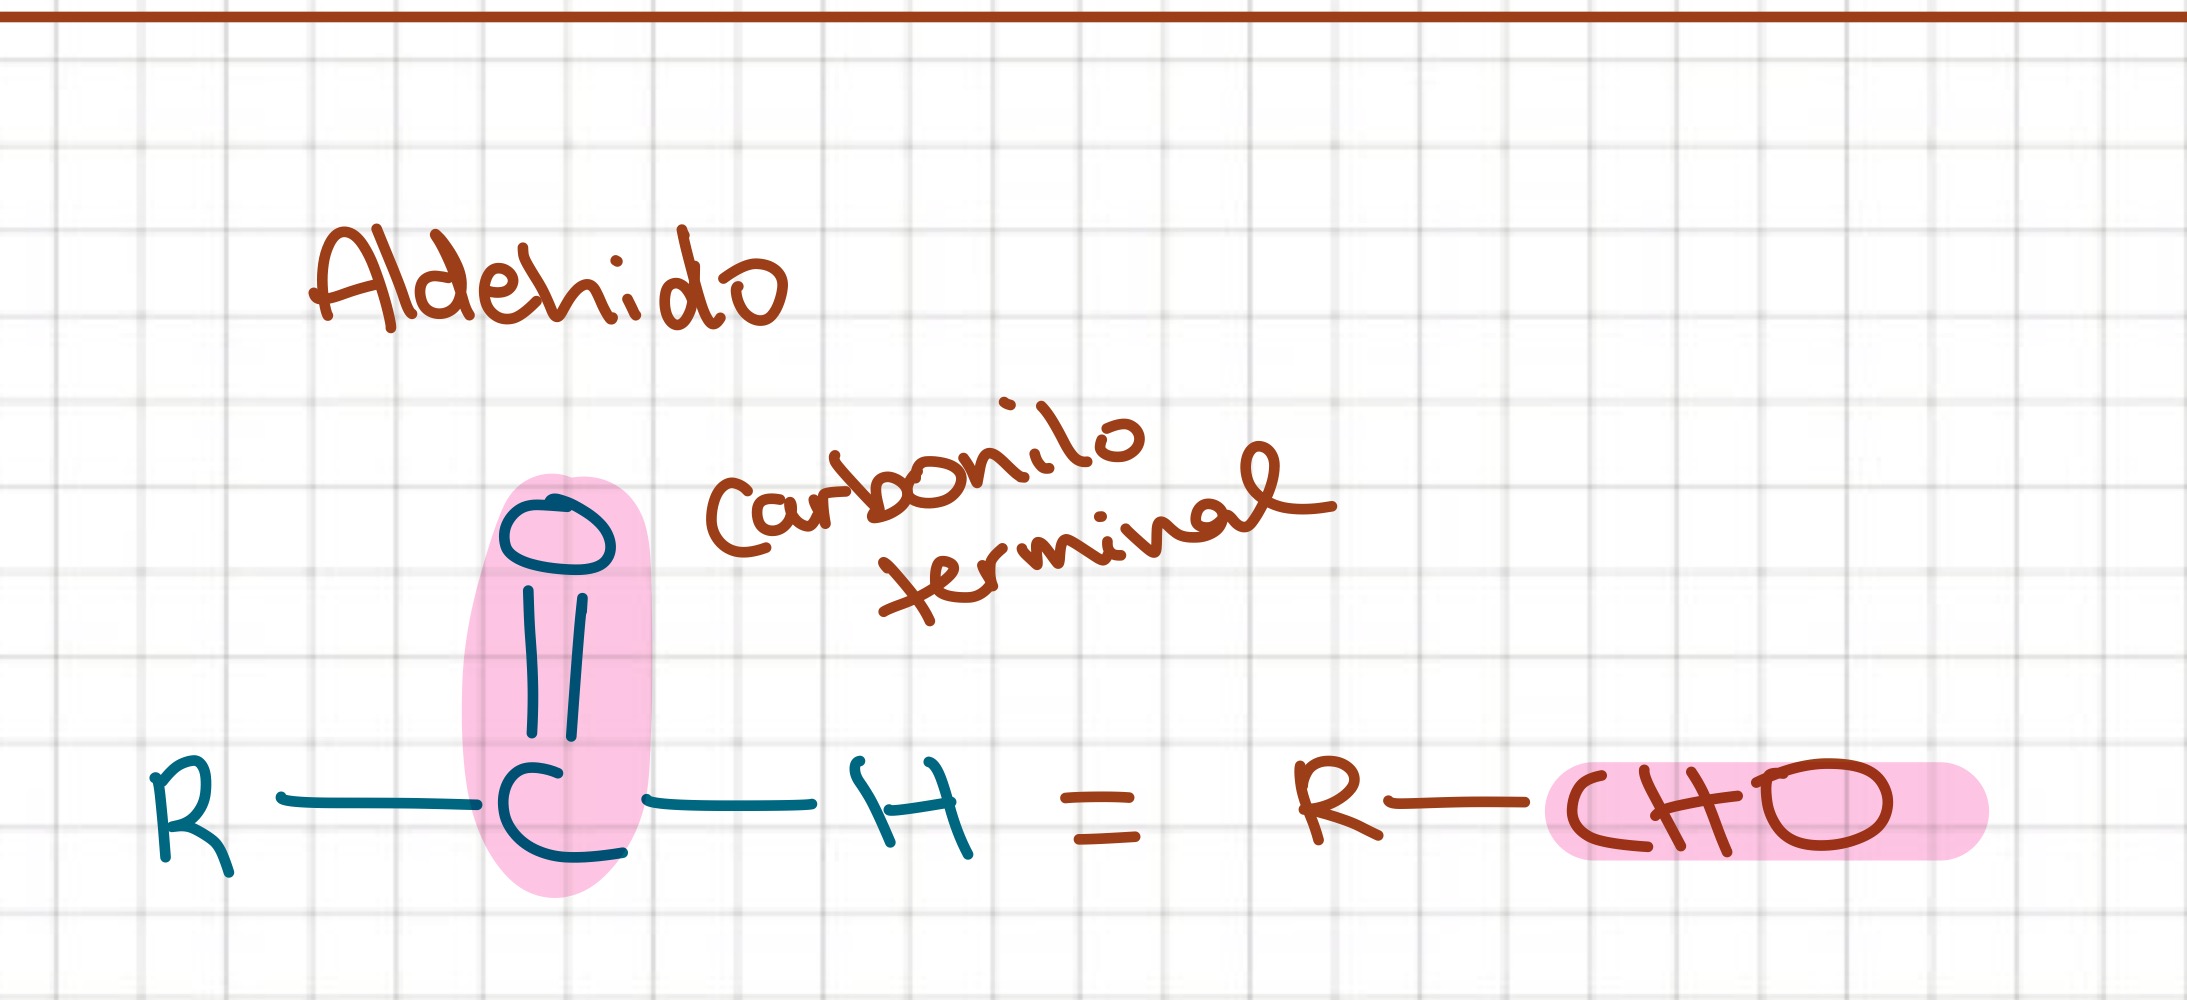 Aldehido
Carbonilo
terminal
O
||
R — C — H = R — CHO